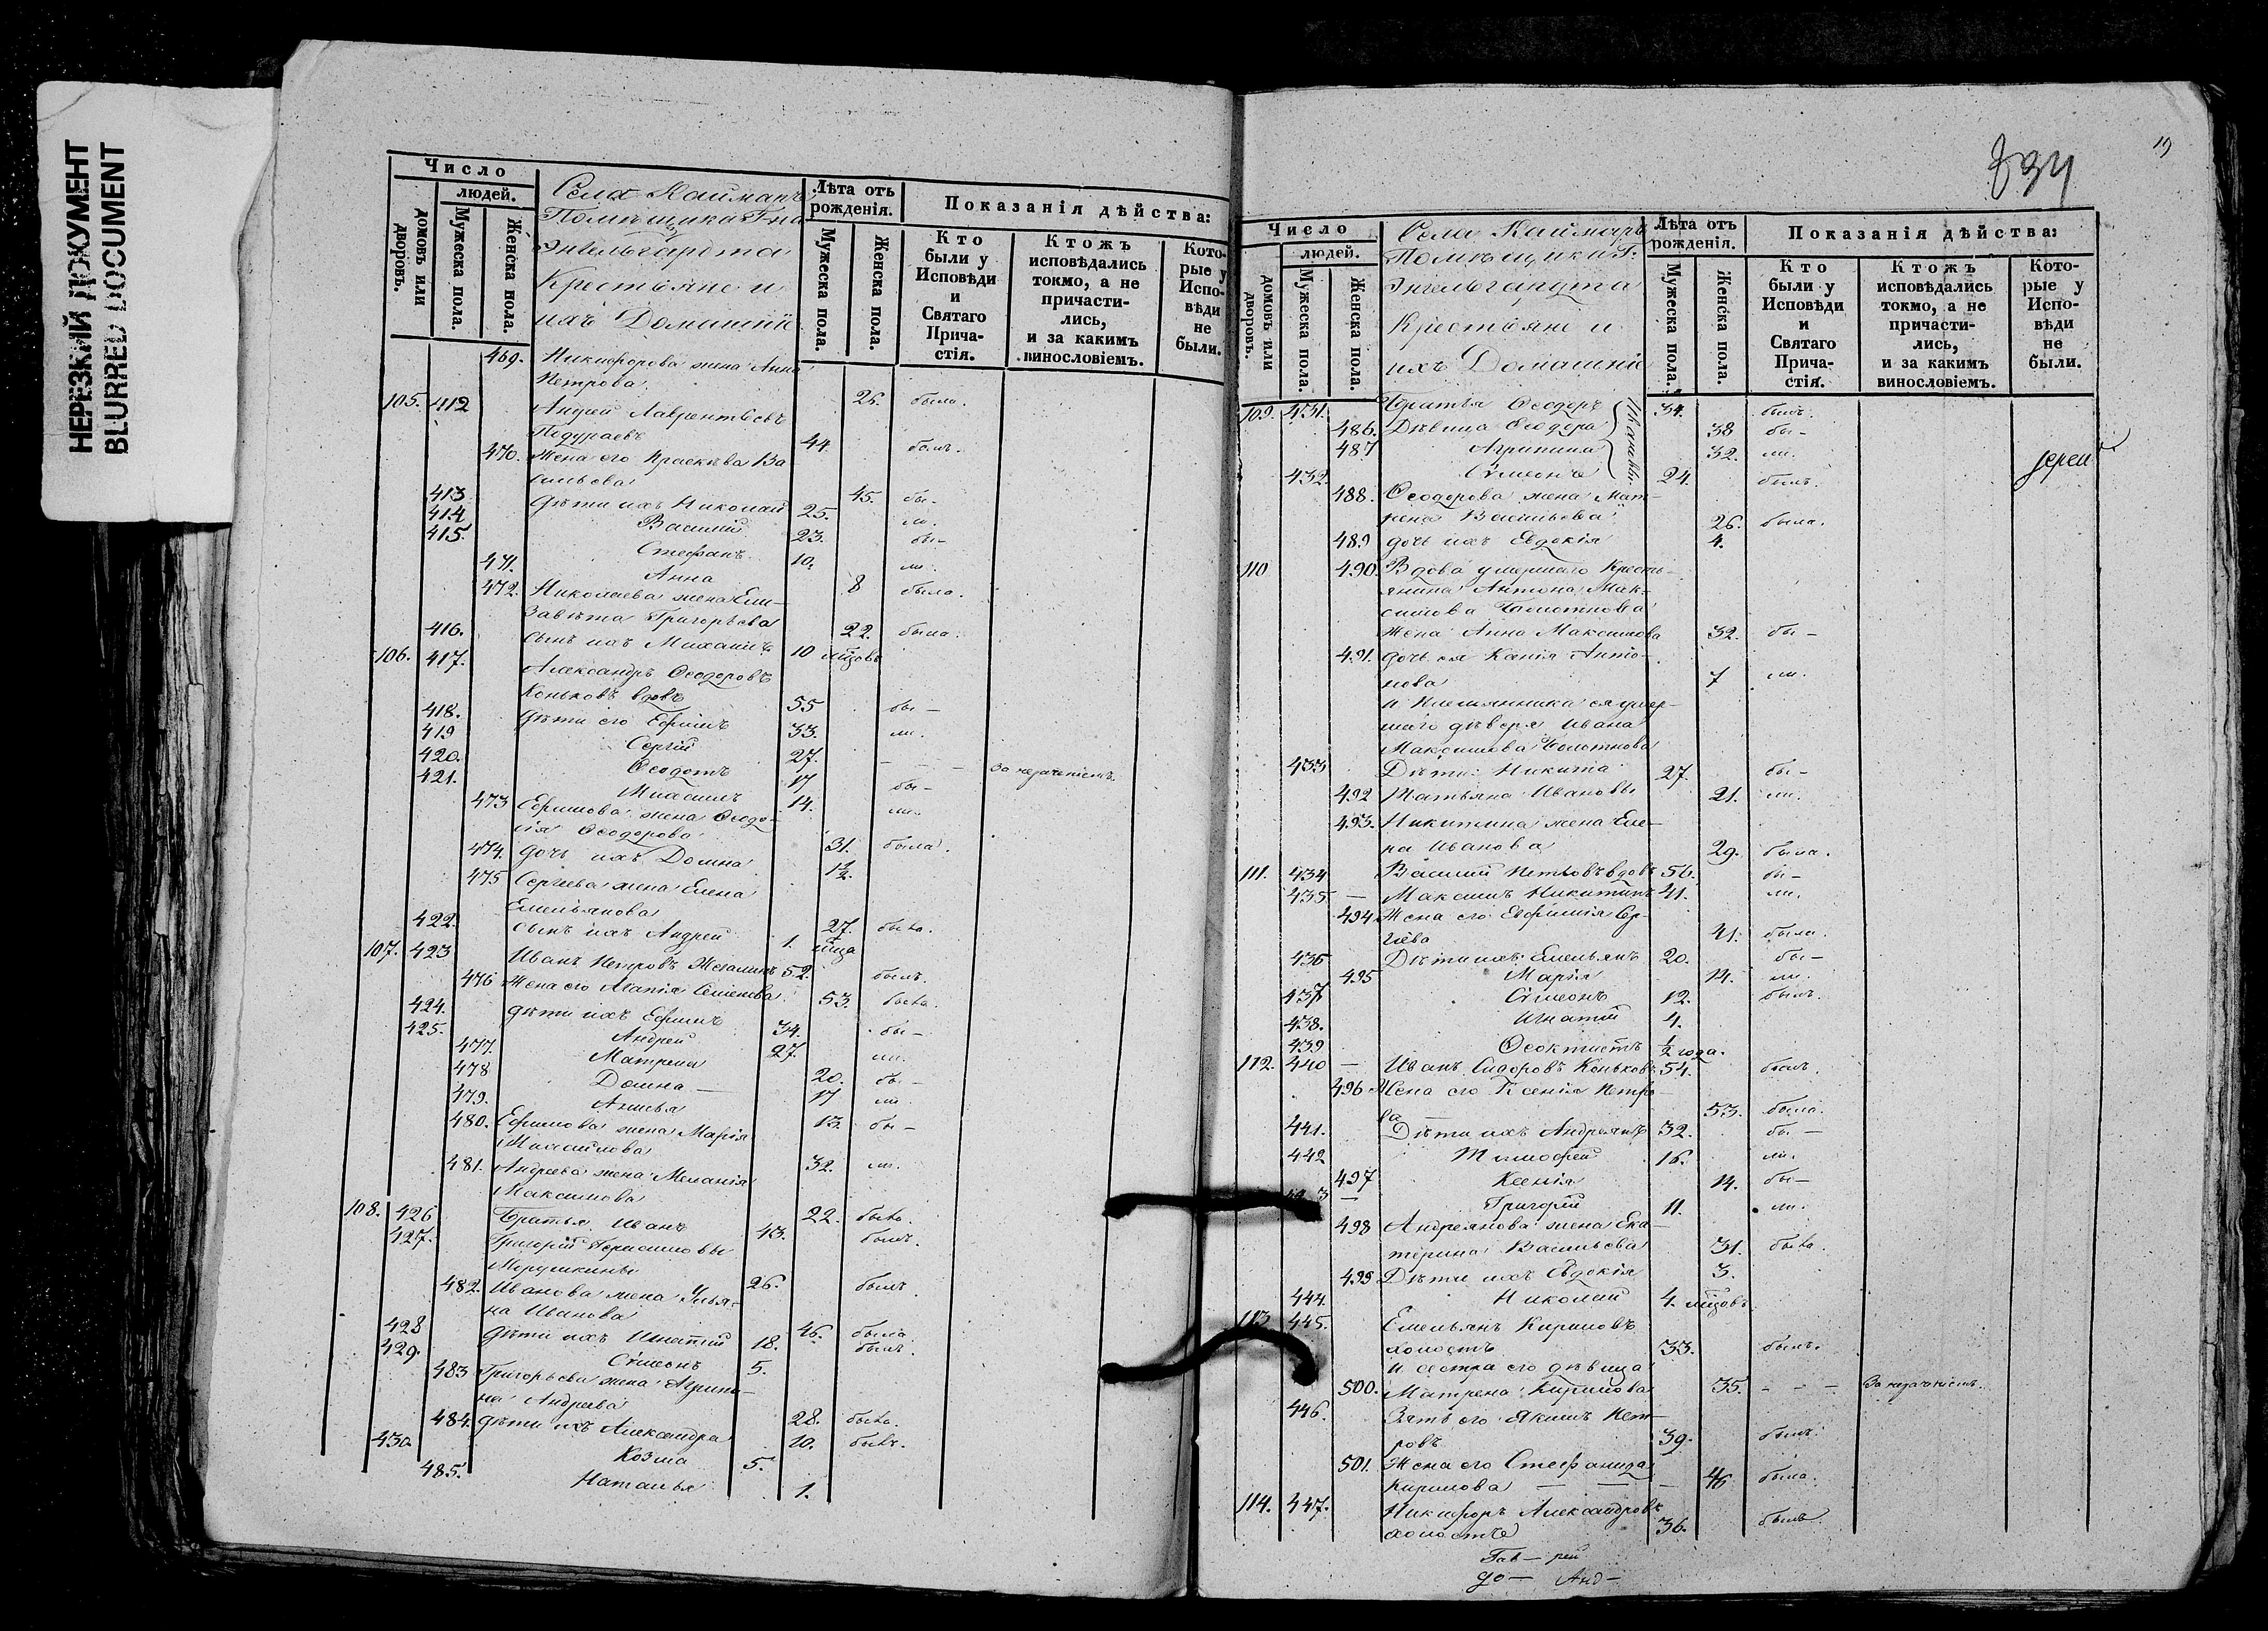 НЕРЕЗКИЙ ДОКУМЕНТ
BLURRED DOCUMENT
Число
домовъ или дворовъ.
людей.
Мужеска пола.
Женска пола.
Села Каймаръ
Помѣщика Г-на
Энгельгардта
Крестьяне и
ихъ Домашніе
Лѣта отъ рожденія.
Мужеска пола.
Женска пола.
Показанія дѣйства:
Кто были у Исповѣди и Святаго Причастія.
Ктожъ исповѣдались токмо, а не причастились, и за какимъ винословіемъ.
Которые у Исповѣди не были.
469. Никифорова жена Анна
Петрова 26. была.
105. 412 Андрей Лаврентьевъ
44. былъ.
470. Жена его Прасковья Ва
сильева 45. бы-
413 дѣти ихъ Николай 25. ли.
414 Василій 23. бы-
415 Стефанъ 10. ли.
471. Анна 8 была.
472. Николаева жена Ели-
завета Григорьева 22. была.
416. сынъ ихъ Михаилъ 10 мѣсяцовъ
106. 417. Александръ Ѳеодоровъ
Коньковъ вдовъ 55 бы-
418. дѣти его Ефимъ 33. ли.
419 Сергій 27. - - - За нерачніемъ.
420. Ѳеодотъ 17 бы-
421. Михаилъ 14. ли.
473 Ефимова жена Ѳеодо-
сія Ѳеодорова 31. была.
474. дочь ихъ Домна 1½.
475 Сергѣева жена Елена
Емельянова 27. была.
422. сынъ ихъ Андрей 1. мѣсяца
107. 423 Иванъ Петровъ 52. былъ.
476 Жена его Агапія Семенова 53. была.
424. дѣти ихъ Ефимъ 34. бы-
425. Андрей 27. ли.
477. Матрена 20. бы-
478 Домна 17 ли.
479. Анисья 13. бы-
480. Ефимова жена Марія
Михайлова 32. ли.
481. Андреева жена Меланія
Максимова 22. была.
108. 426 Братья Иванъ 43. былъ.
427. Григорій Герасимовы
26. былъ
482. Иванова жена Улья-
на Иванова 46. была.
428 дѣти ихъ Игнатій 18. былъ.
429. Сѵмеонъ 5.
483 Григорьева жена Агрипи-
на Андреева 28. была.
484. дѣти ихъ Александра 10. была.
430. Козма 5.
485. Наталья 1.
894
19
Число
домовъ или дворовъ.
людей.
Мужеска пола.
Женска пола.
Села Каймаръ
Помѣщика Г.
Энгельгардта
Крестьяне и
ихъ Домашніе
Лѣта отъ рожденія.
Мужеска пола.
Женска пола.
Показанія дѣйства:
Кто были у Исповѣди и Святаго Причастія.
Ктожъ исповѣдались токмо, а не причастились, и за какимъ винословіемъ.
Которые у Исповѣди не были.
109. 431. Братья Ѳеодоръ 34. былъ.
486. Дѣвица Ѳеодора 38 бы-
487 Агрипина 32. ли.
432. Сѵмеонъ 24. былъ.
Ивановы.
іерей
488. Ѳеодорова жена Мат-
рена Васильева 26. была.
489 дочь ихъ Евдокія 4.
110 490. Вдова умершаго Кресть-
янина Антона Мак-
симова Болотнова
жена Анна Максимова 32. бы-
491. дочь ея Ксенія Анто-
нова 7 ли.
и племянника ея умер-
шаго дѣверя Ивана
Максимова Болотнова
433 Дѣти: Никита 27. бы-
492 Татьяна Ивановы 21. ли.
493. Никитина жена Еле-
на Иванова 29. была.
111. 434 Василій Петровъ вдовъ 56. бы-
435 - Максимъ Никитинъ 41. ли.
494 Жена его Евфимія Сер-
гѣева 41. была.
436 Дѣти ихъ: Емельянъ 20. бы-
495 Марія 14. ли.
437 Сѵмеонъ 12. былъ.
438. Игнатій 4.
439 Ѳеоктистъ ½ года.
112. 440 - Иванъ Сидоровъ Коньковъ 54. былъ.
496 Жена его Ксенія Петро-
ва 53. была.
441. Дѣти ихъ Андреянъ 32. бы-
442 Тимофей 16. ли.
497 Ксенія 14. бы-
443 - Григорій 11. ли.
498 Андреянова жена Ека-
терина Васильева 31. была.
499 Дѣти ихъ Евдокія 3.
444. Николай 4. мѣсяцовъ
113 445. Емельянъ Кириловъ
холостъ 33. былъ.
и сестра его дѣвица
500. Матрена Кирилова 35. - - - За нерачніемъ.
446. Зять его Якимъ Пет-
ровъ 39. былъ.
501. Жена его Стефанида
Кирилова - - - 46 была.
114. 447. Никифоръ Александровъ
холостъ 36. былъ.
Гав - рей
до - Анд -